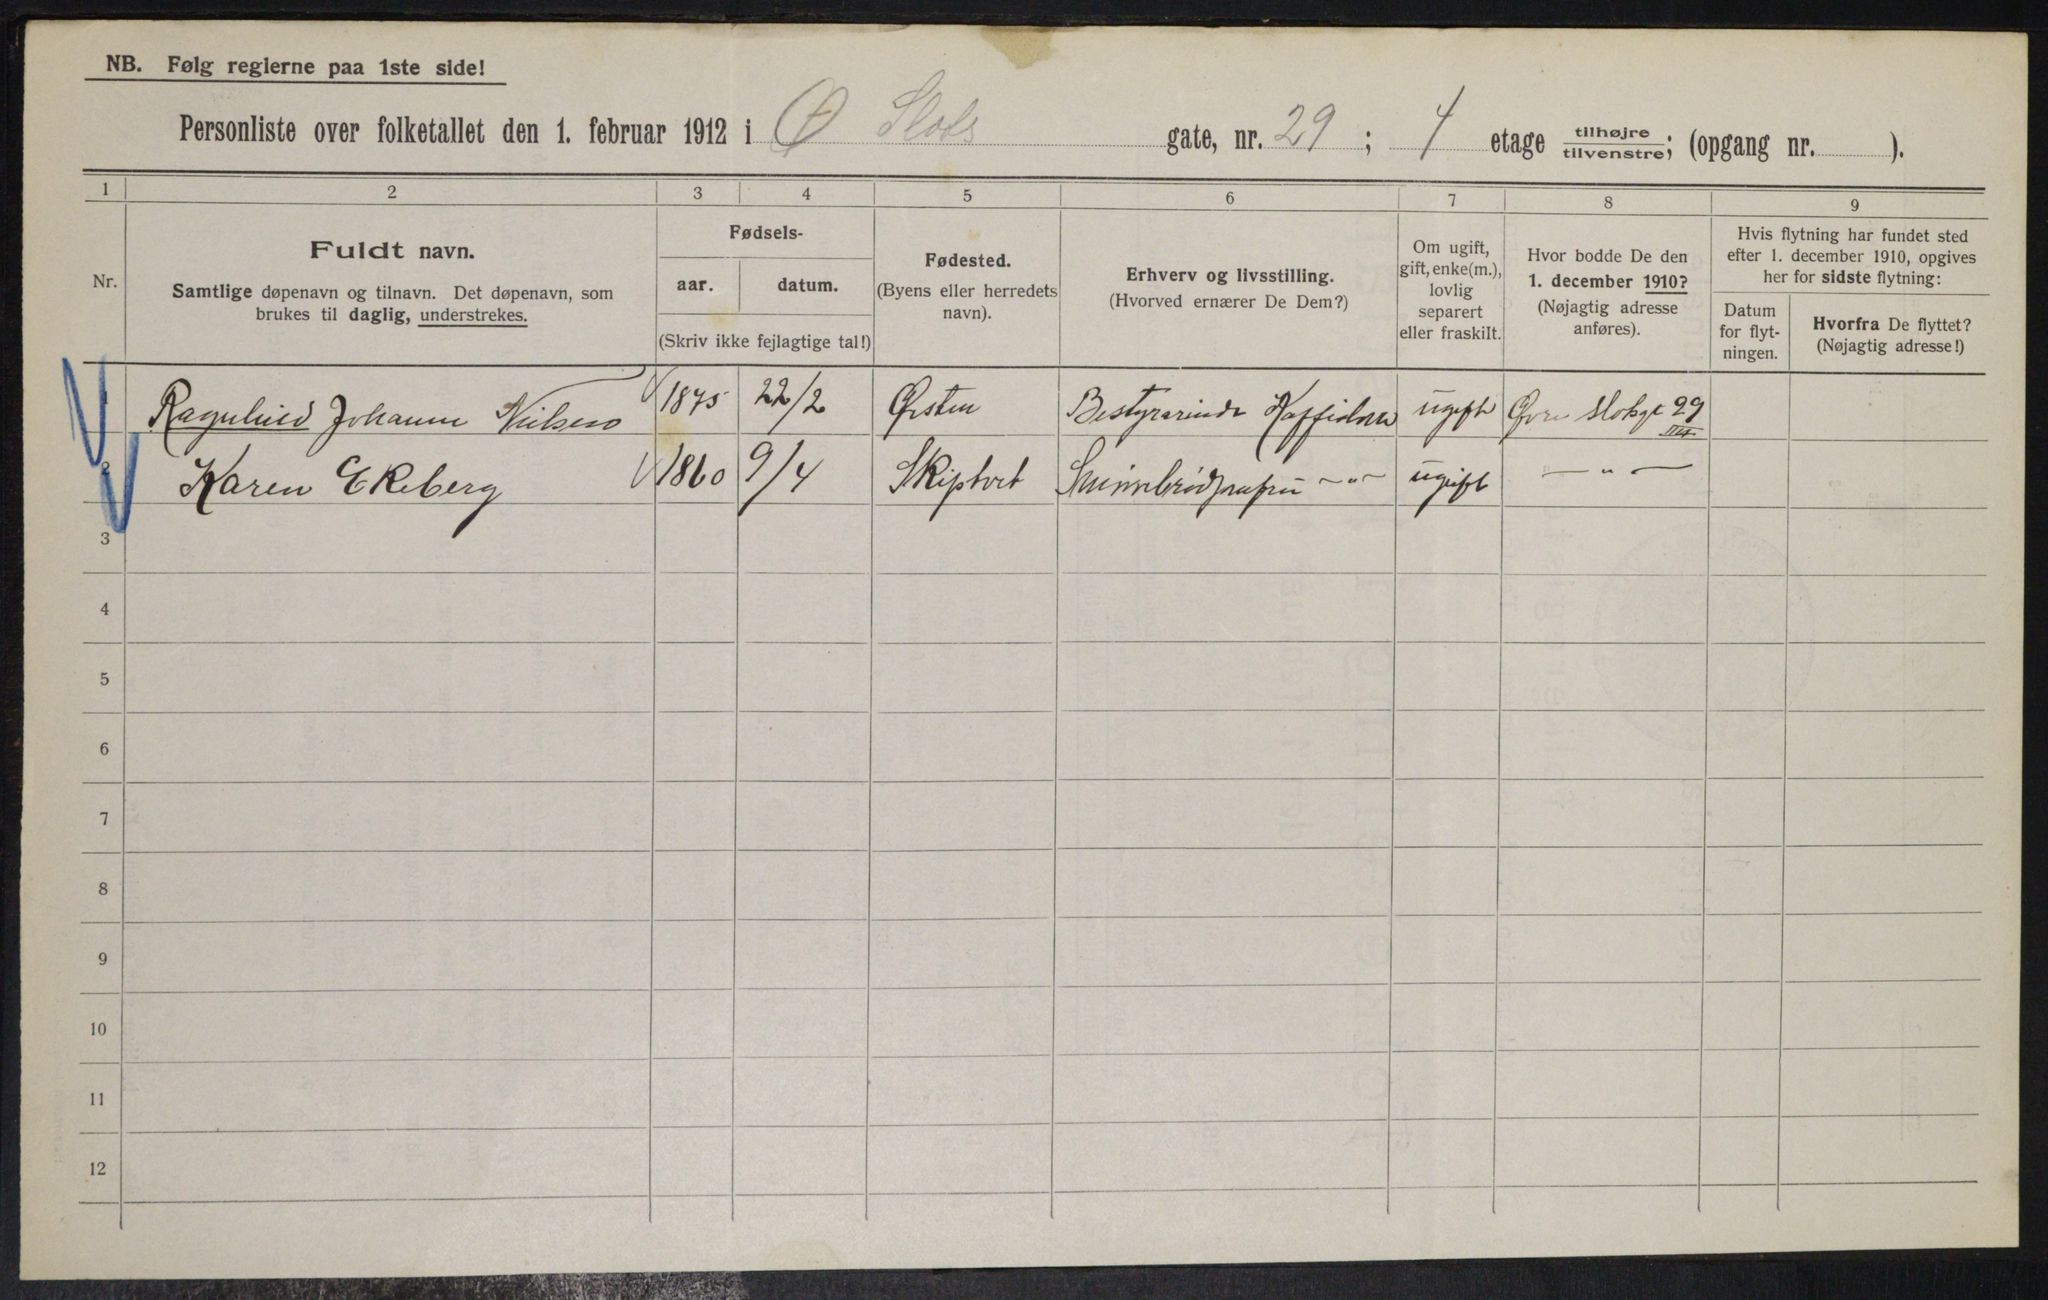 NB. Følg reglerne paa 1ste side!
Personliste over folketallet den 1. februar 1912 i Ø Slots gate, nr. 29; 4 etage tilhøjre/tilvenstre; (opgang nr. ).
1 2 3 4 5 6 7 8 9
Nr.
Fuldt navn.
Samtlige døpenavn og tilnavn. Det døpenavn, som
brukes til daglig, understrekes.
Fødsels-
aar. datum.
(Skriv ikke fejlagtige tal!)
Fødested.
(Byens eller herredets
navn).
Erhverv og livsstilling.
(Hvorved ernærer De Dem?)
Om ugift,
gift, enke(m.),
lovlig
separert
eller fraskilt.
Hvor bodde De den
1. december 1910?
(Nøjagtig adresse
anføres).
Hvis flytning har fundet sted
efter 1. december 1910, opgives
her for sidste flytning:
Datum
for flyt-
ningen.
Hvorfra De flyttet?
(Nøjagtig adresse!)
1 Johanne Nielsen 1875 22/2 Ørsten Bestyrerinde ugift Øvre Slotsgt 29 III
2 Karen Ekeberg 1860 9/4 Skiptvet — " — ugift — " —
3
4
5
6
7
8
9
10
11
12